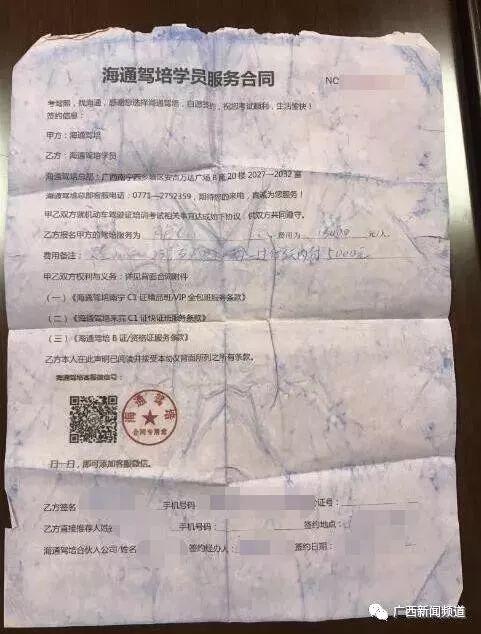 海通驾培学员服务合同
NC
考驾照,找海通,感谢您选择海通驾培,自愿签约,祝您考试顺利,生活愉快!
签约信息:
甲方:海通驾培
乙方:海通驾培学员
海通驾培总部:广西南宁西乡塘区安吉万达广场B座20楼2027-2032室
海通驾培总部客服电话:0771-2752359,期待您的来电,真诚为您服务!
甲乙双方就机动车驾驶证培训考试相关事宜达成如下协议,供双方共同遵守。
乙方报名甲方的驾培服务为 费用为 元/人
费用备注: 内付5000元
甲乙双方权利与义务:详见背面合同附件
(一)《海通驾培南宁C1证精品班/VIP全包班服务条款》
(二)《海通驾培来宾C1证快证班服务条款》
(三)《海通驾培B证/资格证服务条款》
乙方本人在此声明已阅读并接受本协议背面所列之所有条款。
海通驾培客服微信号:
海通驾培
合同专用章
扫一扫,即可添加客服微信。
乙方签名 手机号码: 证号:
乙方直接推荐人姓 手机号码: 签约地点:
海通驾培合伙人公司/姓名 签约经办人: 签约日期:
广西新闻频道